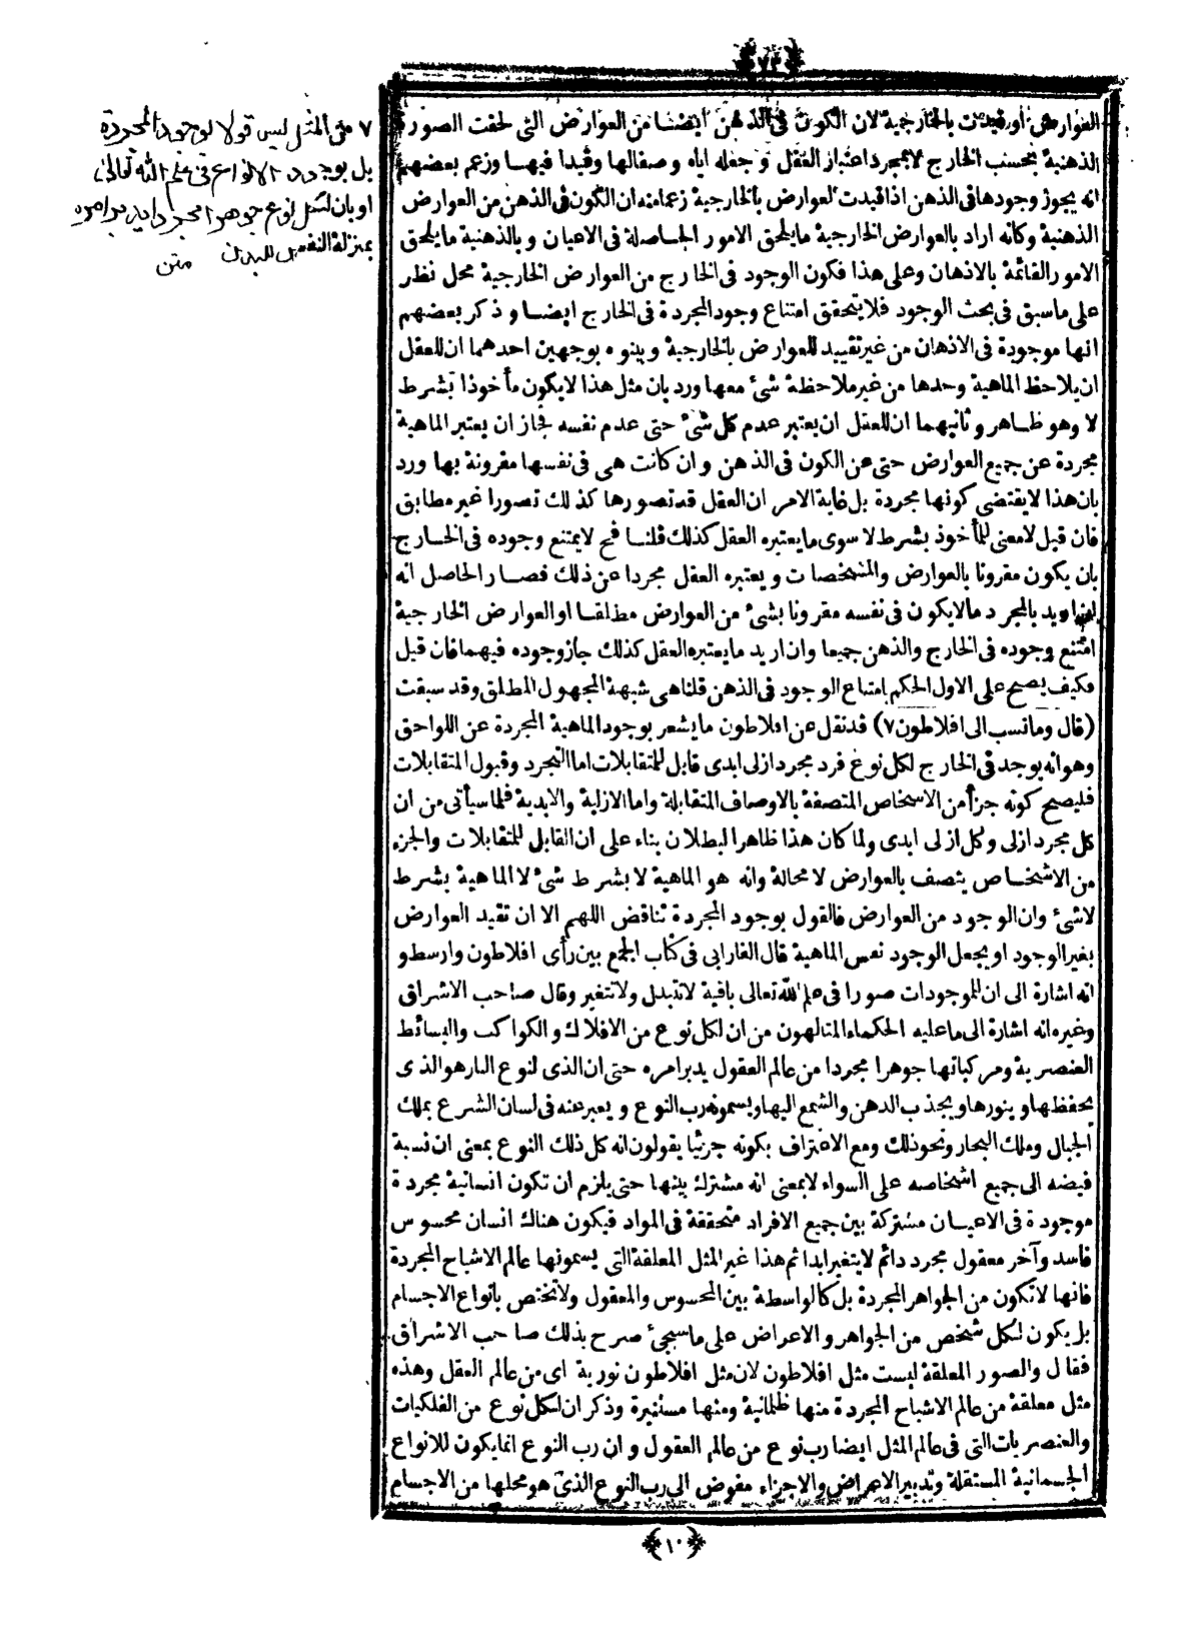 ﴿٧٣﴾
العوارض أو قيدت بالخارجية لان الكون فى الذهن ايضا من العوارض التى لحقت الصورة
الذهنية بحسب الخارج لا بمجرد اعتبار العقل وجعله اياه وصفالها وقيدا فيها وزعم بعضهم
انه يجوز وجودها فى الذهن اذا قيدت العوارض بالخارجية زعما منه ان الكون فى الذهن من العوارض
الذهنية وكانه اراد بالعوارض الخارجية مايلحق الامور الحاصلة فى الاعيان وبالذهنية مايلحق
الامور القائمة بالاذهان وعلى هذا فكون الوجود فى الخارج من العوارض الخارجية محل نظر
على ماسبق فى بحث الوجود فلا يتحقق امتناع وجود المجردة فى الخارج ايضا وذكر بعضهم
انها موجودة فى الاذهان من غير تقييد للعوارض بالخارجية وبينوه بوجهين احدهما ان للعقل
ان يلاحظ الماهية وحدها من غير ملاحظة شئ معها ورد بان مثل هذا لا يكون مأخوذا بشرط
لا وهو ظاهر وثانيهما ان للعقل ان يعتبر عدم كل شئ حتى عدم نفسه فجاز ان يعتبر الماهية
مجردة عن جميع العوارض حتى عن الكون فى الذهن وان كانت هى فى نفسها مقرونة بها ورد
بان هذا لا يقتضى كونها مجردة بل غاية الامر ان العقل قد تصورها كذلك تصورا غير مطابق
فان قيل لامعنى للمأخوذ بشرط لا سوى مايعتبره العقل كذلك قلنا فح لا يمتنع وجوده فى الخارج
بان يكون مقرونا بالعوارض والمشخصات ويعتبره العقل مجردا عن ذلك فصار الحاصل انه
اريد بالمجرد مالا يكون فى نفسه مقرونا بشئ من العوارض مطلقا او العوارض الخارجية
امتنع وجوده فى الخارج والذهن جميعا وان اريد مايعتبره العقل كذلك جاز وجوده فيهما فان قيل
فكيف يصح على الاول الحكم بامتناع الوجود فى الذهن قلنا هى شبهة المجهول المطلق وقد سبقت
(قال وما نسب الى افلاطون ٧) قد نقل عن افلاطون مايشعر بوجود الماهية المجردة عن اللواحق
وهو انه يوجد فى الخارج لكل نوع فرد مجرد ازلى ابدى قابل للمتقابلات اما التجرد وقبول المتقابلات
فليصح كونه جزأ من الاشخاص المتصفة بالاوصاف المتقابلة واما الازلية والابدية فلما سيأتى من ان
كل مجرد ازلى وكل ازلى ابدى ولما كان هذا ظاهر البطلان بناء على ان القابل للمتقابلات والجزء
من الاشخاص يتصف بالعوارض لا محالة وانه هو الماهية لا بشرط شئ لا الماهية بشرط
لا شئ وان الوجود من العوارض فالقول بوجود المجردة تناقض اللهم الا ان تقيد العوارض
بغير الوجود او يجعل الوجود نفس الماهية قال الفارابى فى كتاب الجمع بين رأى افلاطون وارسطو
انه اشارة الى ان للموجودات صورا فى علم الله تعالى باقية لا تتبدل ولا تتغير وقال صاحب الاشراق
وغيره انه اشارة الى ما عليه الحكماء المتالهون من ان لكل نوع من الافلاك والكواكب والبسائط
العنصرية ومركباتها جوهرا مجردا من عالم العقول يدبر امره حتى ان الذى لنوع النار هو الذى
يحفظها وينورها ويجذب الدهن والشمع اليها ويسمونه رب النوع ويعبر عنه فى لسان الشرع بملك
الجبال وملك البحار ونحو ذلك ومع الاعتراف بكونه جزئيا يقولون انه كل ذلك النوع بمعنى ان نسبة
فيضه الى جميع اشخاصه على السواء لا بمعنى انه مشترك بينها حتى يلزم ان تكون انسانية مجردة
موجودة فى الاعيان مشتركة بين جميع الافراد متحققة فى المواد فيكون هناك انسان محسوس
فاسد وآخر معقول مجرد دائم لا يتغير ابدا ثم هذا غير المثل المعلقة التى يسمونها عالم الاشباح المجردة
فانها لا تكون من الجواهر المجردة بل كالواسطة بين المحسوس والمعقول ولا تختص بانواع الاجسام
بل يكون لكل شخص من الجواهر والاعراض على ماسيجئ صرح بذلك صاحب الاشراق
فقال والصور المعلقة ليست مثل افلاطون لان مثل افلاطون نورية اى من عالم العقل وهذه
مثل معلقة من عالم الاشباح المجردة منها ظلمانية ومنها مستنيرة وذكر ان لكل نوع من الفلكيات
والعنصريات التى فى عالم المثل ايضا رب نوع من عالم العقول وان رب النوع انما يكون للانواع
الجسمانية المستقلة وتدبير الاعراض والاجزاء مفوض الى رب النوع الذى هو محلها من الاجسام
﴿١٠﴾
٧ من المثل ليس قولا بوجود المجردة
بل بوجود الانواع فى علم الله تعالى
او بان لكل نوع جوهرا مجردا يدبر امره
بمنزلة النفس للبدن متن